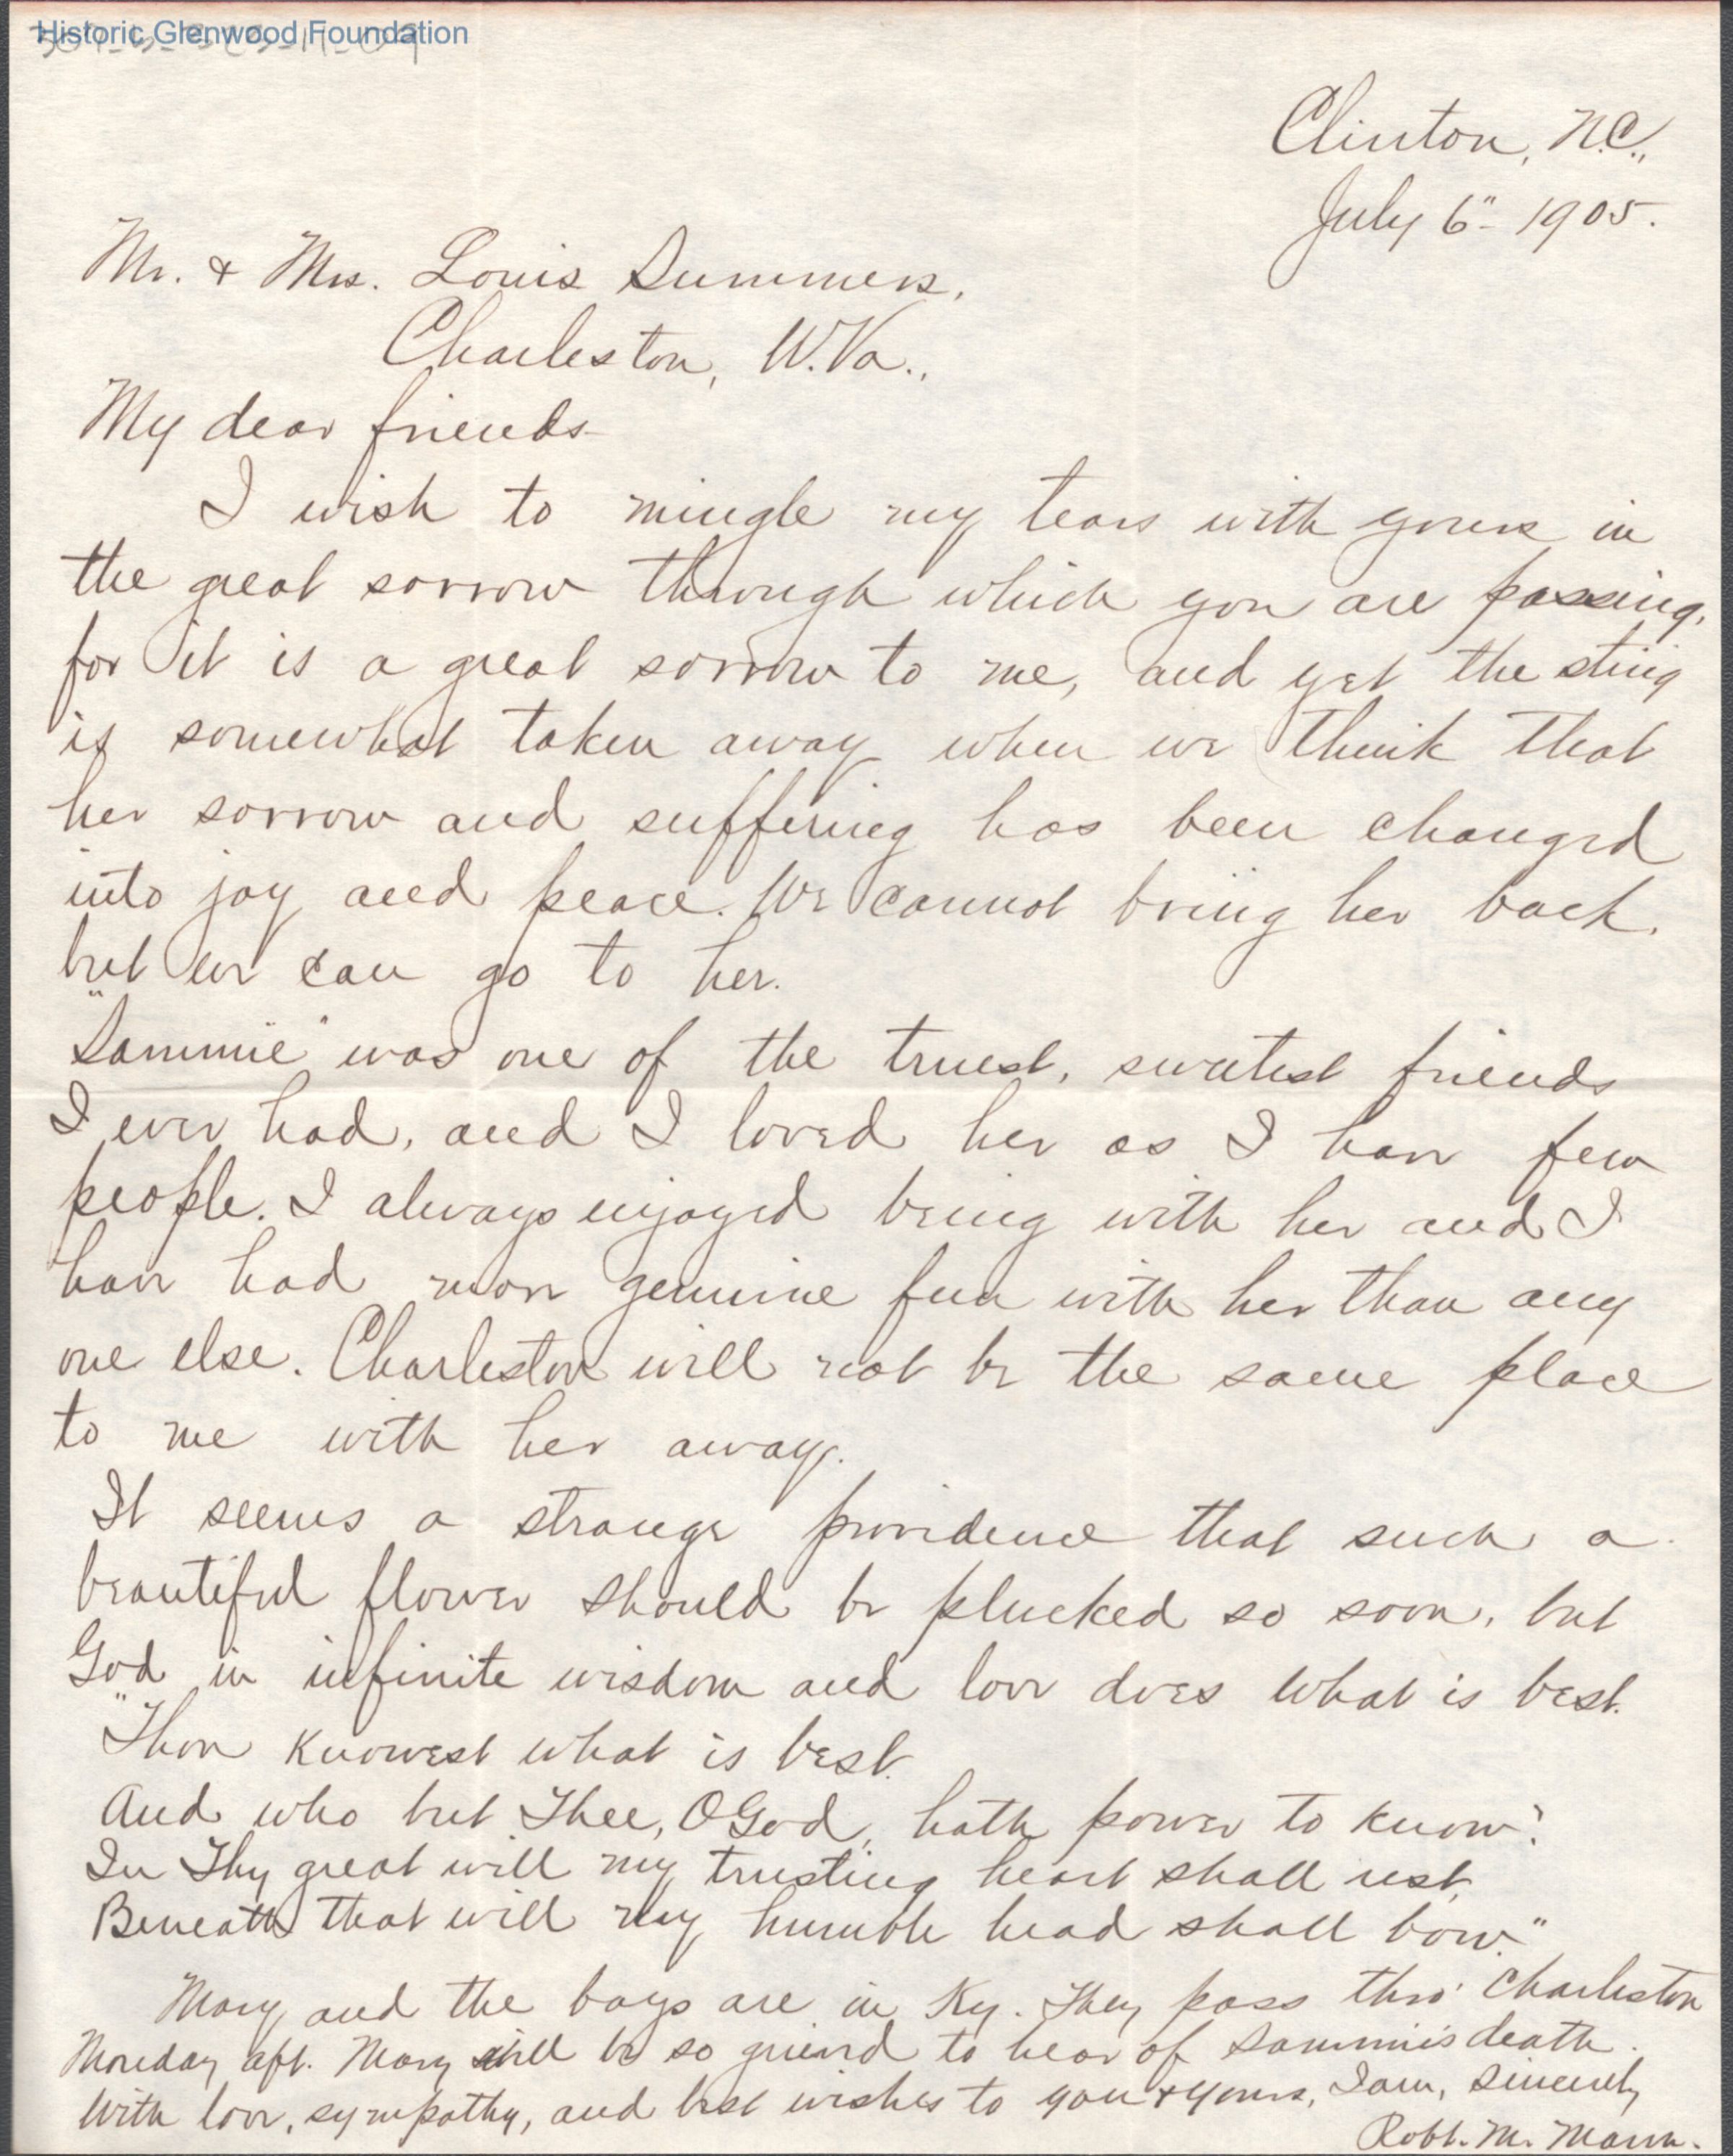 Historic Glenwood Foundation
Clinton, N.C.,
July 6" 1905.
Mr. & Mrs. Louis Summers,
Charleston, W.Va.,
My dear friends-
I wish to mingle my tears with yours in
the great sorrow through which you are passing,
for it is a great sorrow to me, and yet the sting
is somewhat taken away when we think that
her sorrow and suffering has been changed
into joy and peace. We cannot bring her back,
but we can go to her.
"Sammie" was one of the truest, sweetest friends
I ever had, and I loved her as I have few
people. I always enjoyed being with her and I
have had more genuine fun with her than any
one else. Charleston will not be the same place
to me with her away.
It seems a strange providence that such a
beautiful flower should be plucked so soon, but
God in infinite wisdom and love does what is best.
"Thou knowest what is best.
And who but Thee, O God, hath power to know?
In Thy great will my trusting heart shall rest,
Beneath that will my humble head shall bow."
Mary and the boys are in Ky. They pass thro' Charleston
Monday aft. Mary will be so grieved to hear of Sammie's death.
With love, sympathy, and best wishes to you & yours, I am, Sincerely
Robt. M. Mann.